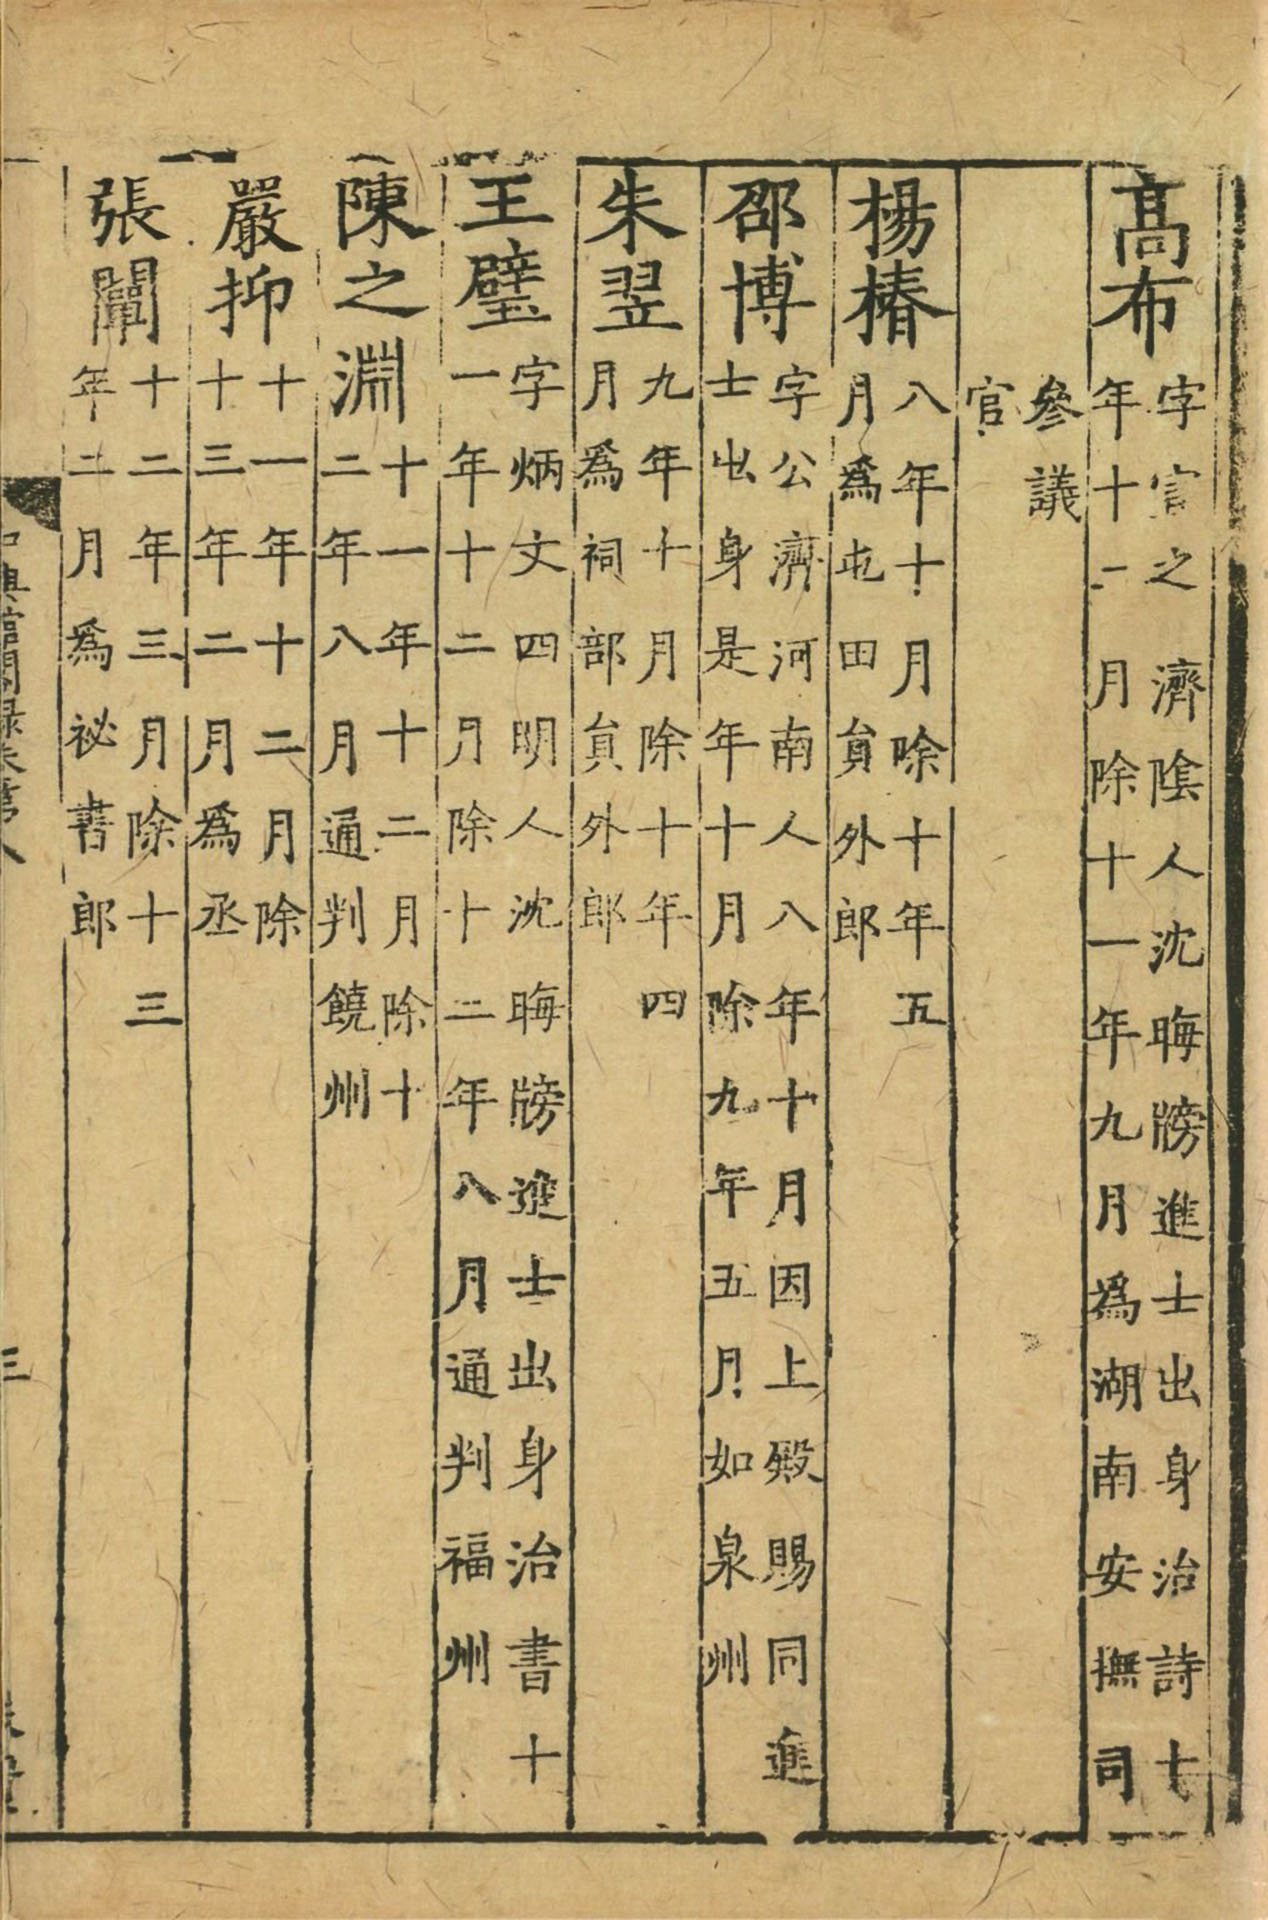 高布字宣之濟陰人沈晦牓進士出身治詩七
年十二月除十一年九月爲湖南安撫司
參議
官
楊椿八年十月除十年五
月爲屯田貟外郎
邵博字公濟河南人八年十月因上殿賜同進
士出身是年十月除九年五月如泉州
朱翌九年十月除十年四
月爲祠部貟外郎
王璧字炳文四明人沈晦牓進士出身治書十
一年十二月除十二年八月通判福州
陳之淵十一年十二月除十
二年八月通判饒州
嚴抑十一年十二月除
十三年二月爲丞
張闡十二年三月除十三
年二月爲祕書郎
中興館閣録卷第八
三